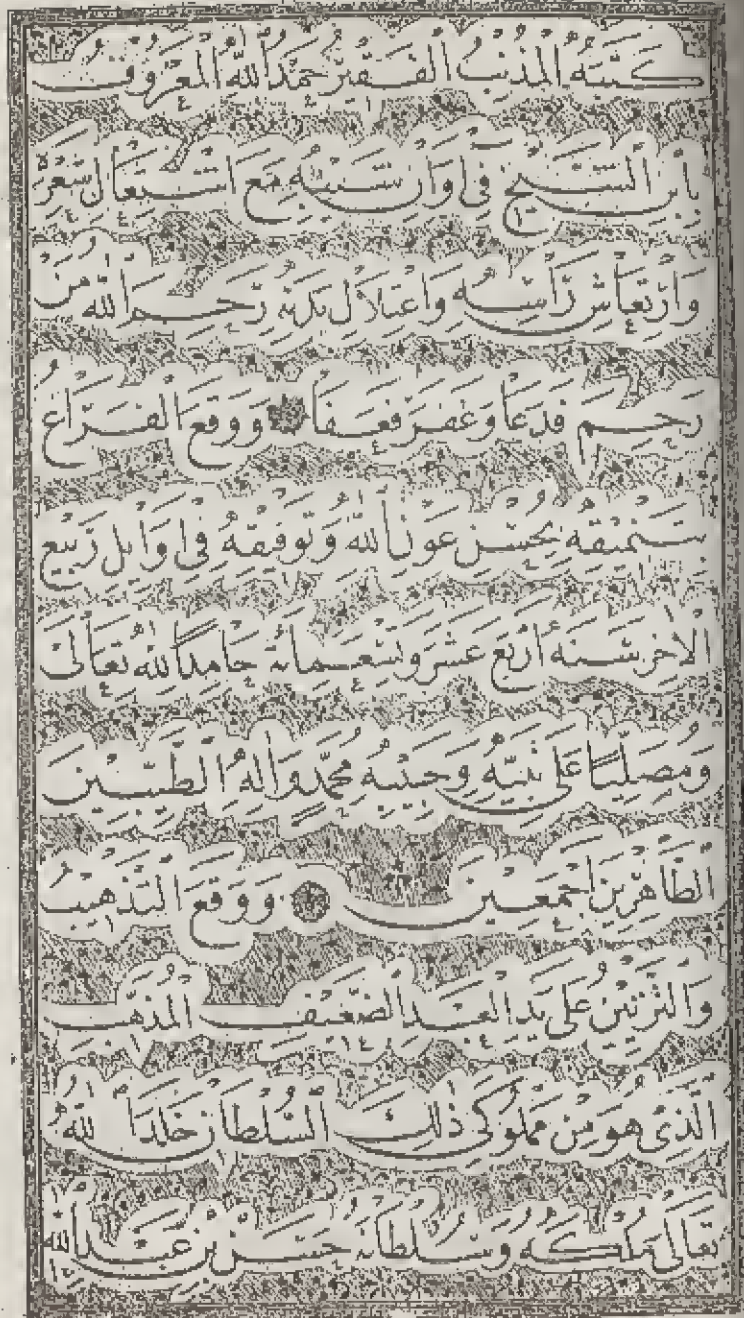 كتبه المذنب الفقير حمد الله المعروف
بابن الشيخ في اوان شيبه مع اشتعال شعره
وارتعاش رأسه واعتلال بدنه رحم الله من
رحم فدعا وغفر فعفا ووقع الفراغ
بتنميقه بحسن عون الله وتوفيقه في اوايل ربيع
الاخر سنه أربع عشر وتسعمائه حامدا لله تعالى
ومصليا على نبيه وحبيبه محمد واله الطيبين
الطاهرين اجمعين ووقع التذهيب
والتزيين على يد العبد الضعيف المذهب
الذي هو من مملوكي ذلك السلطان خلد الله
تعالى ملكه وسلطانه حسن بن عبد الله